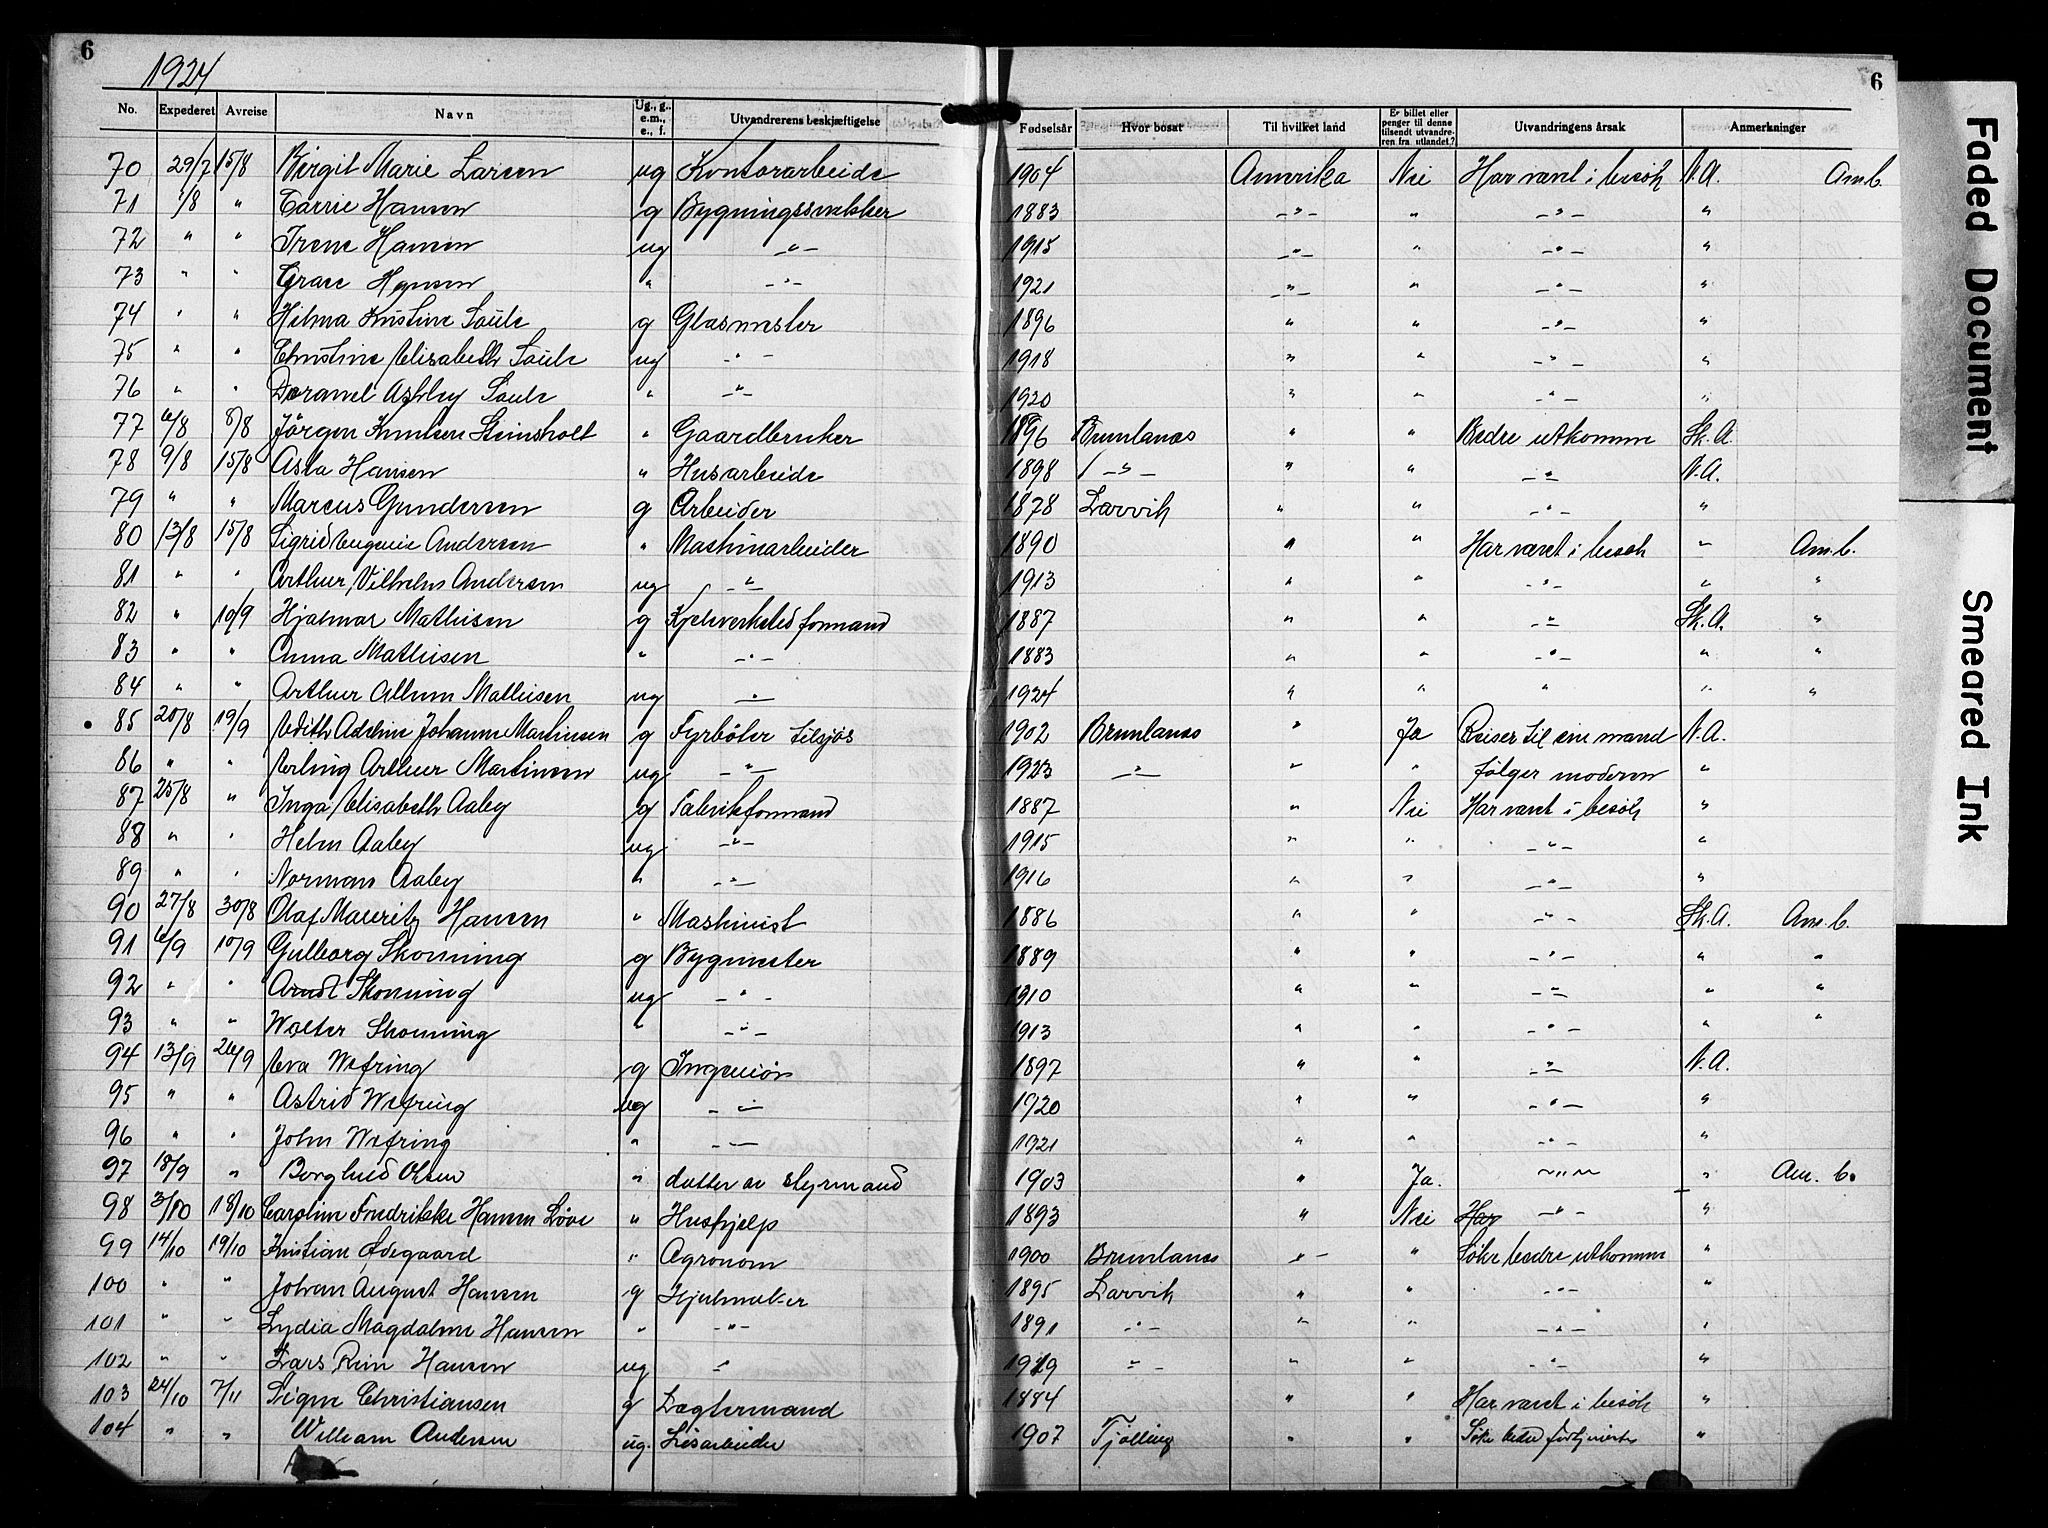 6
1924
No. Expederet Avreise Navn Ug., g., e.m., e., f. Utvandrerens beskjæftigelse Fødselsår Hvor bosat Til hvilket land Er billet eller penger til denne tilsendt utvandreren fra utlandet? Utvandringens årsak Anmerkninger
6
70 29/7 15/8 Birgit Marie Larsen ug Kontorarbeide 1904 Amerika Nei Har været i besøk N.A. Am.b.
71 1/8 " Carrie Hansen g Bygningssnekker 1883 -"- " -"- "
72 " " Irene Hansen ug -"- 1915 -"- " -"- "
73 " " Grace Hansen " -"- 1921 -"- " -"- "
74 " " Hilma Kristine Saule g Glasmester 1896 " " -"- "
75 " " Christine Elisabeth Saule ug -"- 1918 " " -"- "
76 " " Astley Saule " -"- 1920 " " -"- "
77 6/8 8/8 Jörgen Knutsen Steinsholt " Gaardbruker 1896 Brunlanes " " Bedre utkomme Sk.A.
78 9/8 15/8 Asta Hansen " Husarbeide 1898 -"- " " -"- N.A.
79 " " Marcus Gundersen g Arbeider 1878 Larvik " " -"- "
80 13/8 15/8 Sigrid Eugenie Andersen " Maskinarbeider 1890 " " Har været i besøk " Am.b.
81 " " Arthur Vilhelm Andersen ug -"- 1913 " " -"- " "
82 " 10/9 Hjalmar Mathisen g Kjeleverksted formand 1887 " " -"- Sk.A. "
83 " " Anna Mathisen " -"- 1883 " " -"- " "
84 " " Arthur Mathisen ug -"- 1924 " " " " "
85 20/8 19/9 Edith Adeline Johanne Martinsen g Fyrbøter tilsjøs 1902 Brunlanes " Ja Reiser til sin mand N.A.
86 " " Erling Arthur Martinsen ug -"- 1923 -"- " " følger moderen "
87 25/8 " Inga Elisabeth Aaby g Fabrikformand 1887 " Nei Har været i besøk "
88 " " Helen Aaby ug -"- 1915 " " -"- "
89 " " Norman Aaby " -"- 1916 " " -"- "
90 27/8 30/8 Olaf Mauritz Hansen " Maskinist 1886 " " -"- Sk.A. Am.b.
91 6/9 10/9 Gulborg Skonning g Bygmester 1889 " " -"- " "
92 " " Arndt Skonning ug -"- 1910 " " -"- " "
93 " " Walter Skonning " -"- 1913 " " -"- " "
94 13/9 26/9 Eva Wefring g Ingeniör 1897 " " -"- N.A.
95 " " Astrid Wefring ug -"- 1920 " " -"- "
96 " " John Wefring " -"- 1921 " " -"- "
97 18/9 " Borghild Olsen " datter av styrmand 1903 " Ja. -"- " Am. b.
98 3/10 18/10 Caroline Fredrikke Hansen Løve " Hushjelp 1893 " Nei Har -"- "
99 14/10 19/10 Kristian Ødegaard " Agronom 1900 Brunlanes -"- " Søke bedre utkomme "
100 " " Johan August Hansen g Hjulmaker 1895 Larvik " " -"- "
101 " " Lydia Magdalene Hansen " -"- 1891 -"- " " -"- "
102 " " Lars Hansen ug " 1919 -"- " " -"- "
103 24/10 7/11 Signe Christiansen g Lægtermand 1884 " " Har været i besøk "
104 " " William Andersen ug. Løsarbeider 1907 Tjølling " " Søke bedre fortjeneste "
Faded Document
Smeared Ink